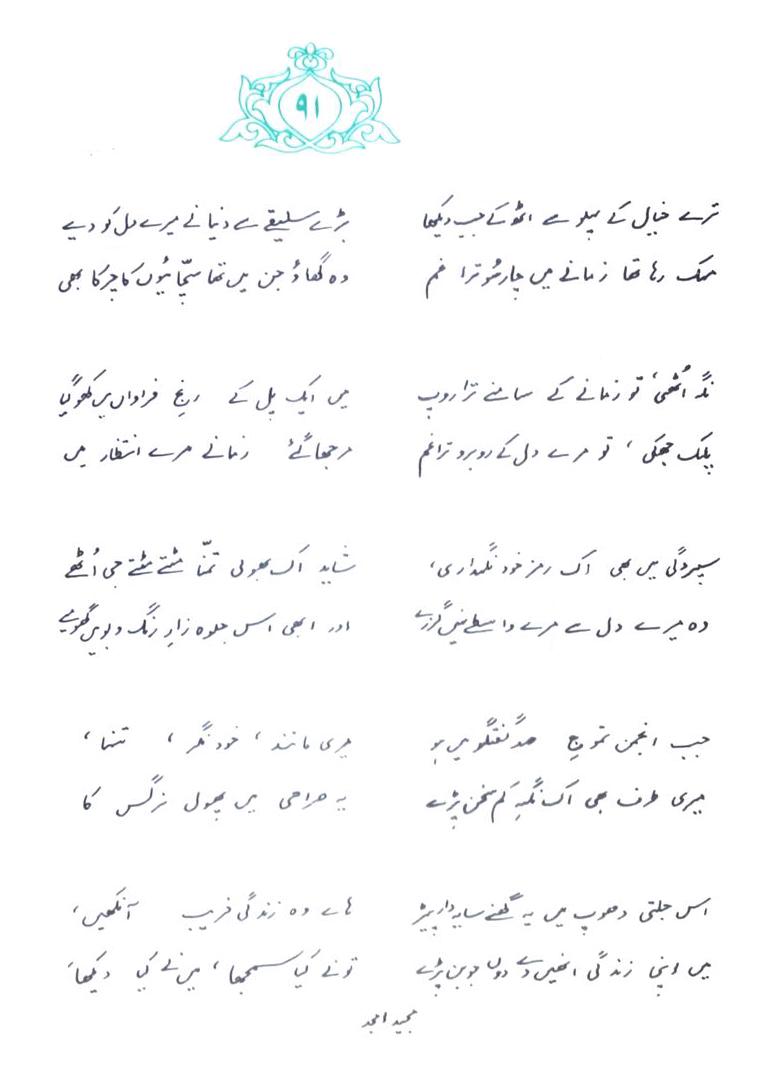 ۹۱
ترے خیال کے پہلو سے اٹھ کے جب دیکھا
مہک رہا تھا زمانے میں چار سُو ترا غم
بڑے سلیقے سے دنیا نے میرے دل کو دیے
وہ گھاؤ جن میں تھا سچّائیوں کا چرکا بھی
نگہ اُٹھی، تو زمانے کے سامنے ترا روپ
پلک جھکی، تو مرے دل کے روبرو ترا غم
میں ایک پل کے رنجِ فراواں میں کھو گیا
مرجھا گئے زمانے مرے انتظار میں
سپردگی میں بھی اک رمز خود نگہداری،
وہ میرے دل سے مرے واسطے نہیں گزرے
شاید اک بھولی تمنّا مٹتے مٹتے جی اُٹھے
اور ابھی اس جلوہ زارِ رنگ و بو میں گھومیے
جب انجمن تموجِ صد گفتگو میں ہو
میری طرف بھی اک نگہِ کم سخن پڑے
میری مانند، خود نگر، تنہا،
یہ صراحی میں پھول نرگس کا
اس جلتی دھوپ میں یہ گھنے سایہ دار پیڑ
میں اپنی زندگی انھیں دے دوں جو بن پڑے
ہاے وہ زندگی فریب آنکھیں،
تو نے کیا سمجھا، میں نے کیا دیکھا،
مجید امجد